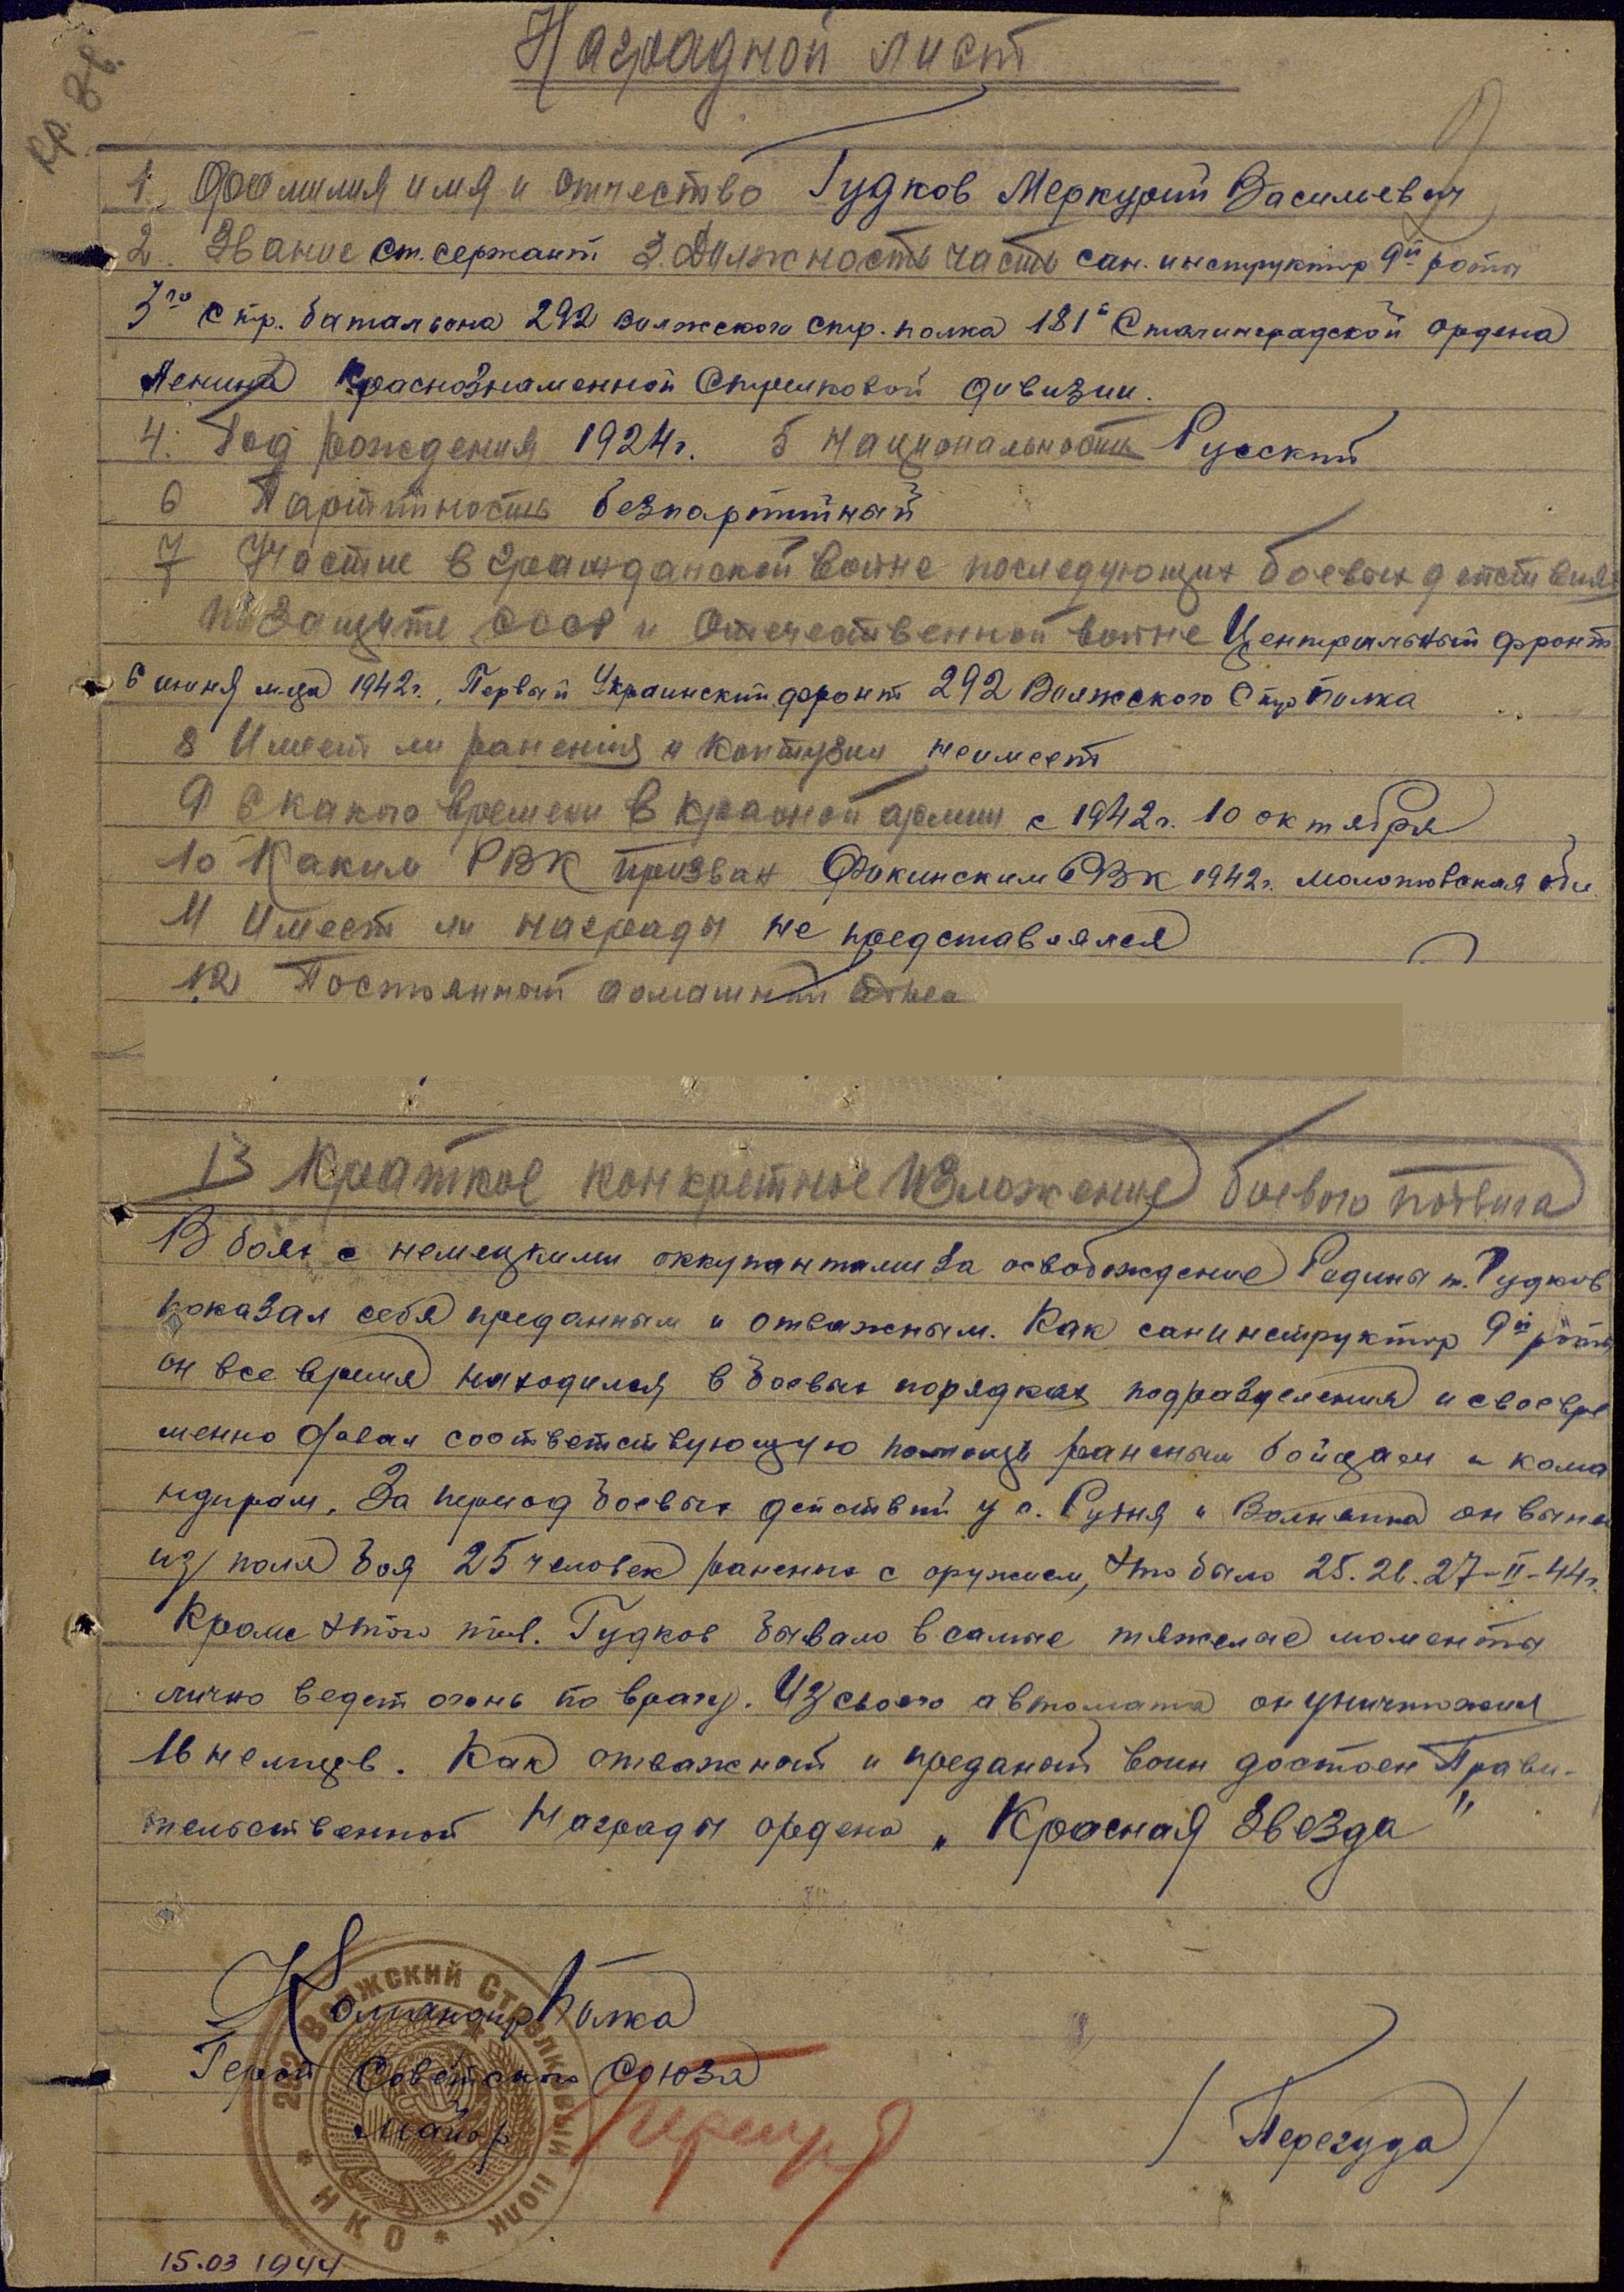 Кр. Зв.
Наградной лист
1. Фамилия имя и отчество Гудков Меркурий Васильевич
2. Звание ст. сержант 3. Должность часть сан. инструктор 9й роты
3го стр. батальона 292 Волжского стр. полка 181й Сталинградской ордена
Ленина Краснознаменной Стрелковой дивизии.
4. Год рождения 1924г. 5 Национальность Русский
6 Партийность безпартийный
7 Участие в гражданской войне последующих боевых действиях
по защите СССР и отечественной войне Центральный фронт
с июня м-ца 1942г., Первый Украинский фронт 292 Волжского Стр Полка
8 Имеет ли ранения и контузии неимеет
9 С какого времени в красной армии с 1942г. 10 октября
10 Каким РВК призван РВК 1942г. Молотовская обл.
11 Имеет ли награды не представлялся
12 Постоянный домашний адрес
13 Краткое конкретное изложение боевого подвига
В боях с немецкими оккупантами за освобождение Родины т. Гудков
показал себя преданным и отважным. Как санинструктор 9й роты
он все время находился в боевых порядках подразделения и своевре
менно давал соответствующую помощь раненым бойцам и кома
ндирам. За период боевых действий у с. Рудня и он вынес
из поля боя 25 человек раненых с оружием, это было 25. 26. 27-II-44г.
Кроме этого тов. Гудков бывало в самые тяжелые моменты
лично ведет огонь по врагу. Из своего автомата он уничтожил
16 немцев. Как отважный и преданый воин достоен Прави-
тельственной Награды ордена „Красная Звезда"
Командир Полка
Герой Советского Союза
Майор
/Перегуда/
292 Волжский Стрелковый полк
* НКО *
15.03 1944